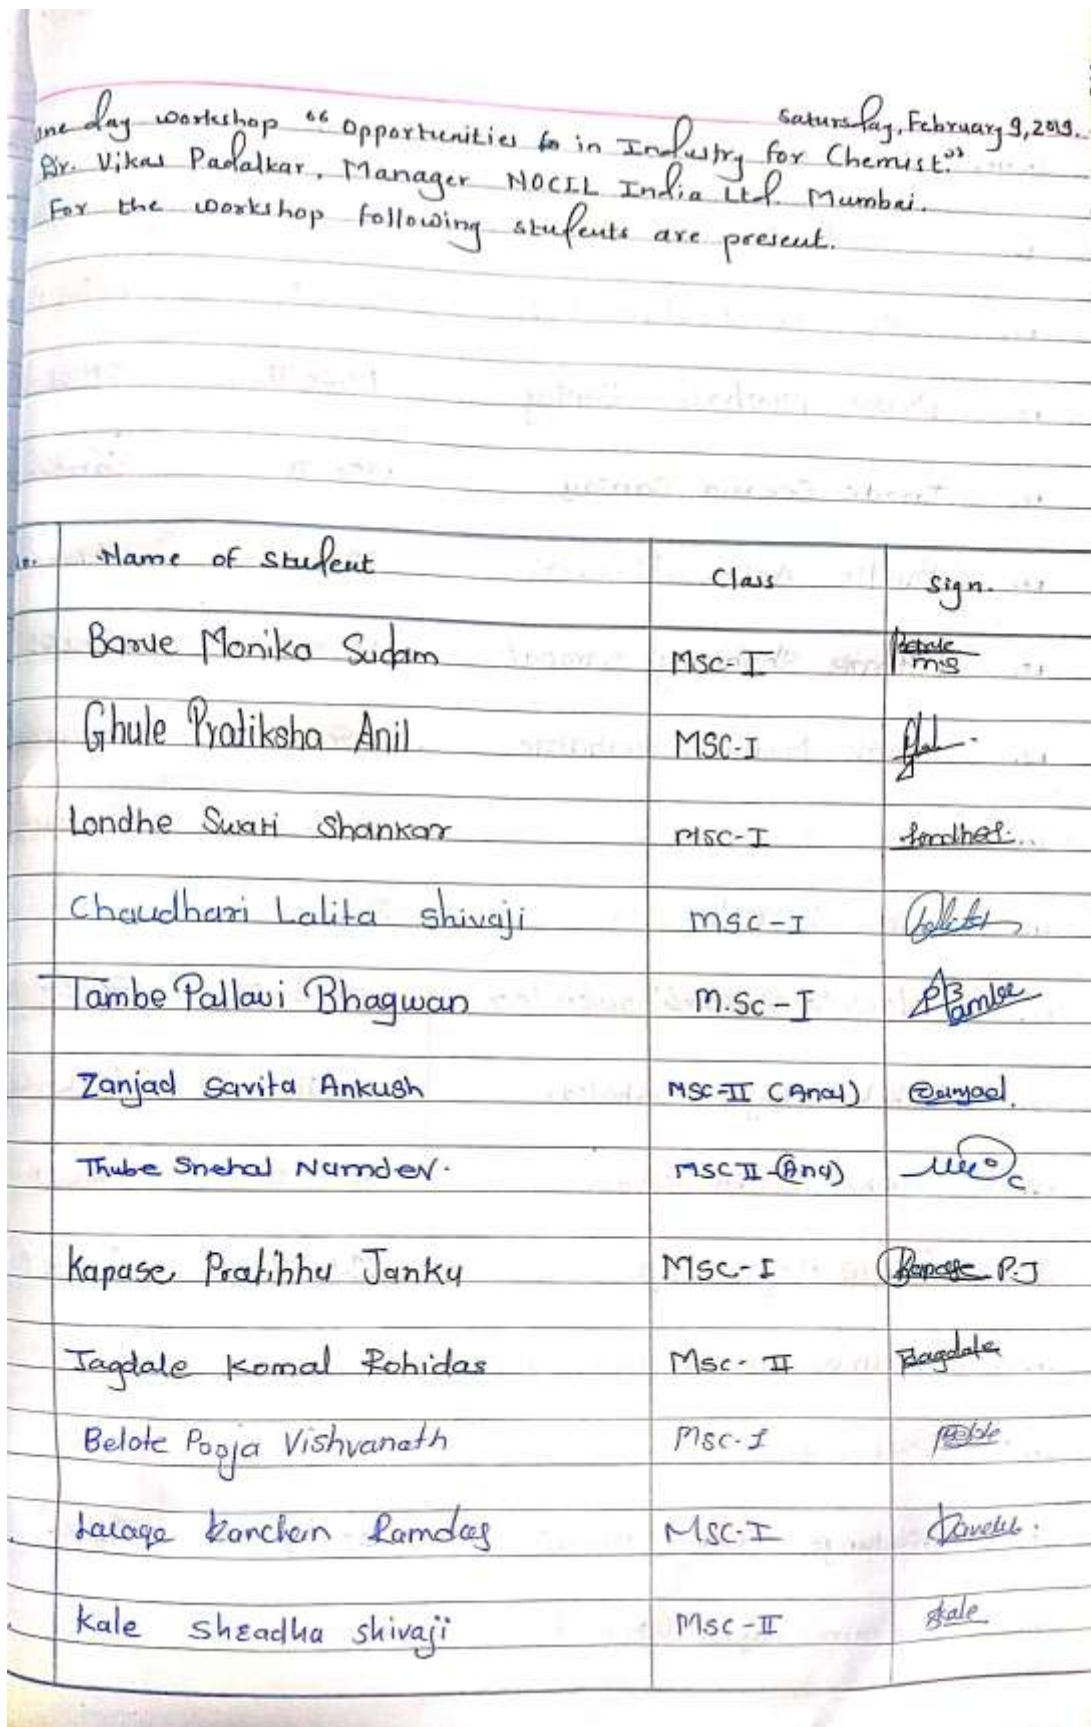 Saturday, February 9, 2019.
one day workshop "Opportunities in Industry for Chemist."
Dr. Vikas Padalkar, Manager NOCIL India Ltd. Mumbai.
For the workshop following students are present.
Name of student Class Sign.
Barve Monika Sudam MSC-I
Ghule Pratiksha Anil MSC-I
Londhe Swati Shankar MSC-I Londhe
Chaudhari Lalita Shivaji MSC-I
Tambe Pallavi Bhagwan M.Sc-I
Zanjad Savita Ankush MSC-II (Anal) Zanjad.
Thube Snehal Namdev. MSC II-(Any)
Kapase Pratibha Janku MSC-I Kapase P.J
Jagdale Komal Rohidas Msc-II Jagdale
Belote Pooja Vishvanath Msc-I
Kanchan Ramdas MSC-I
Kale Shradha Shivaji MSC-II Kale